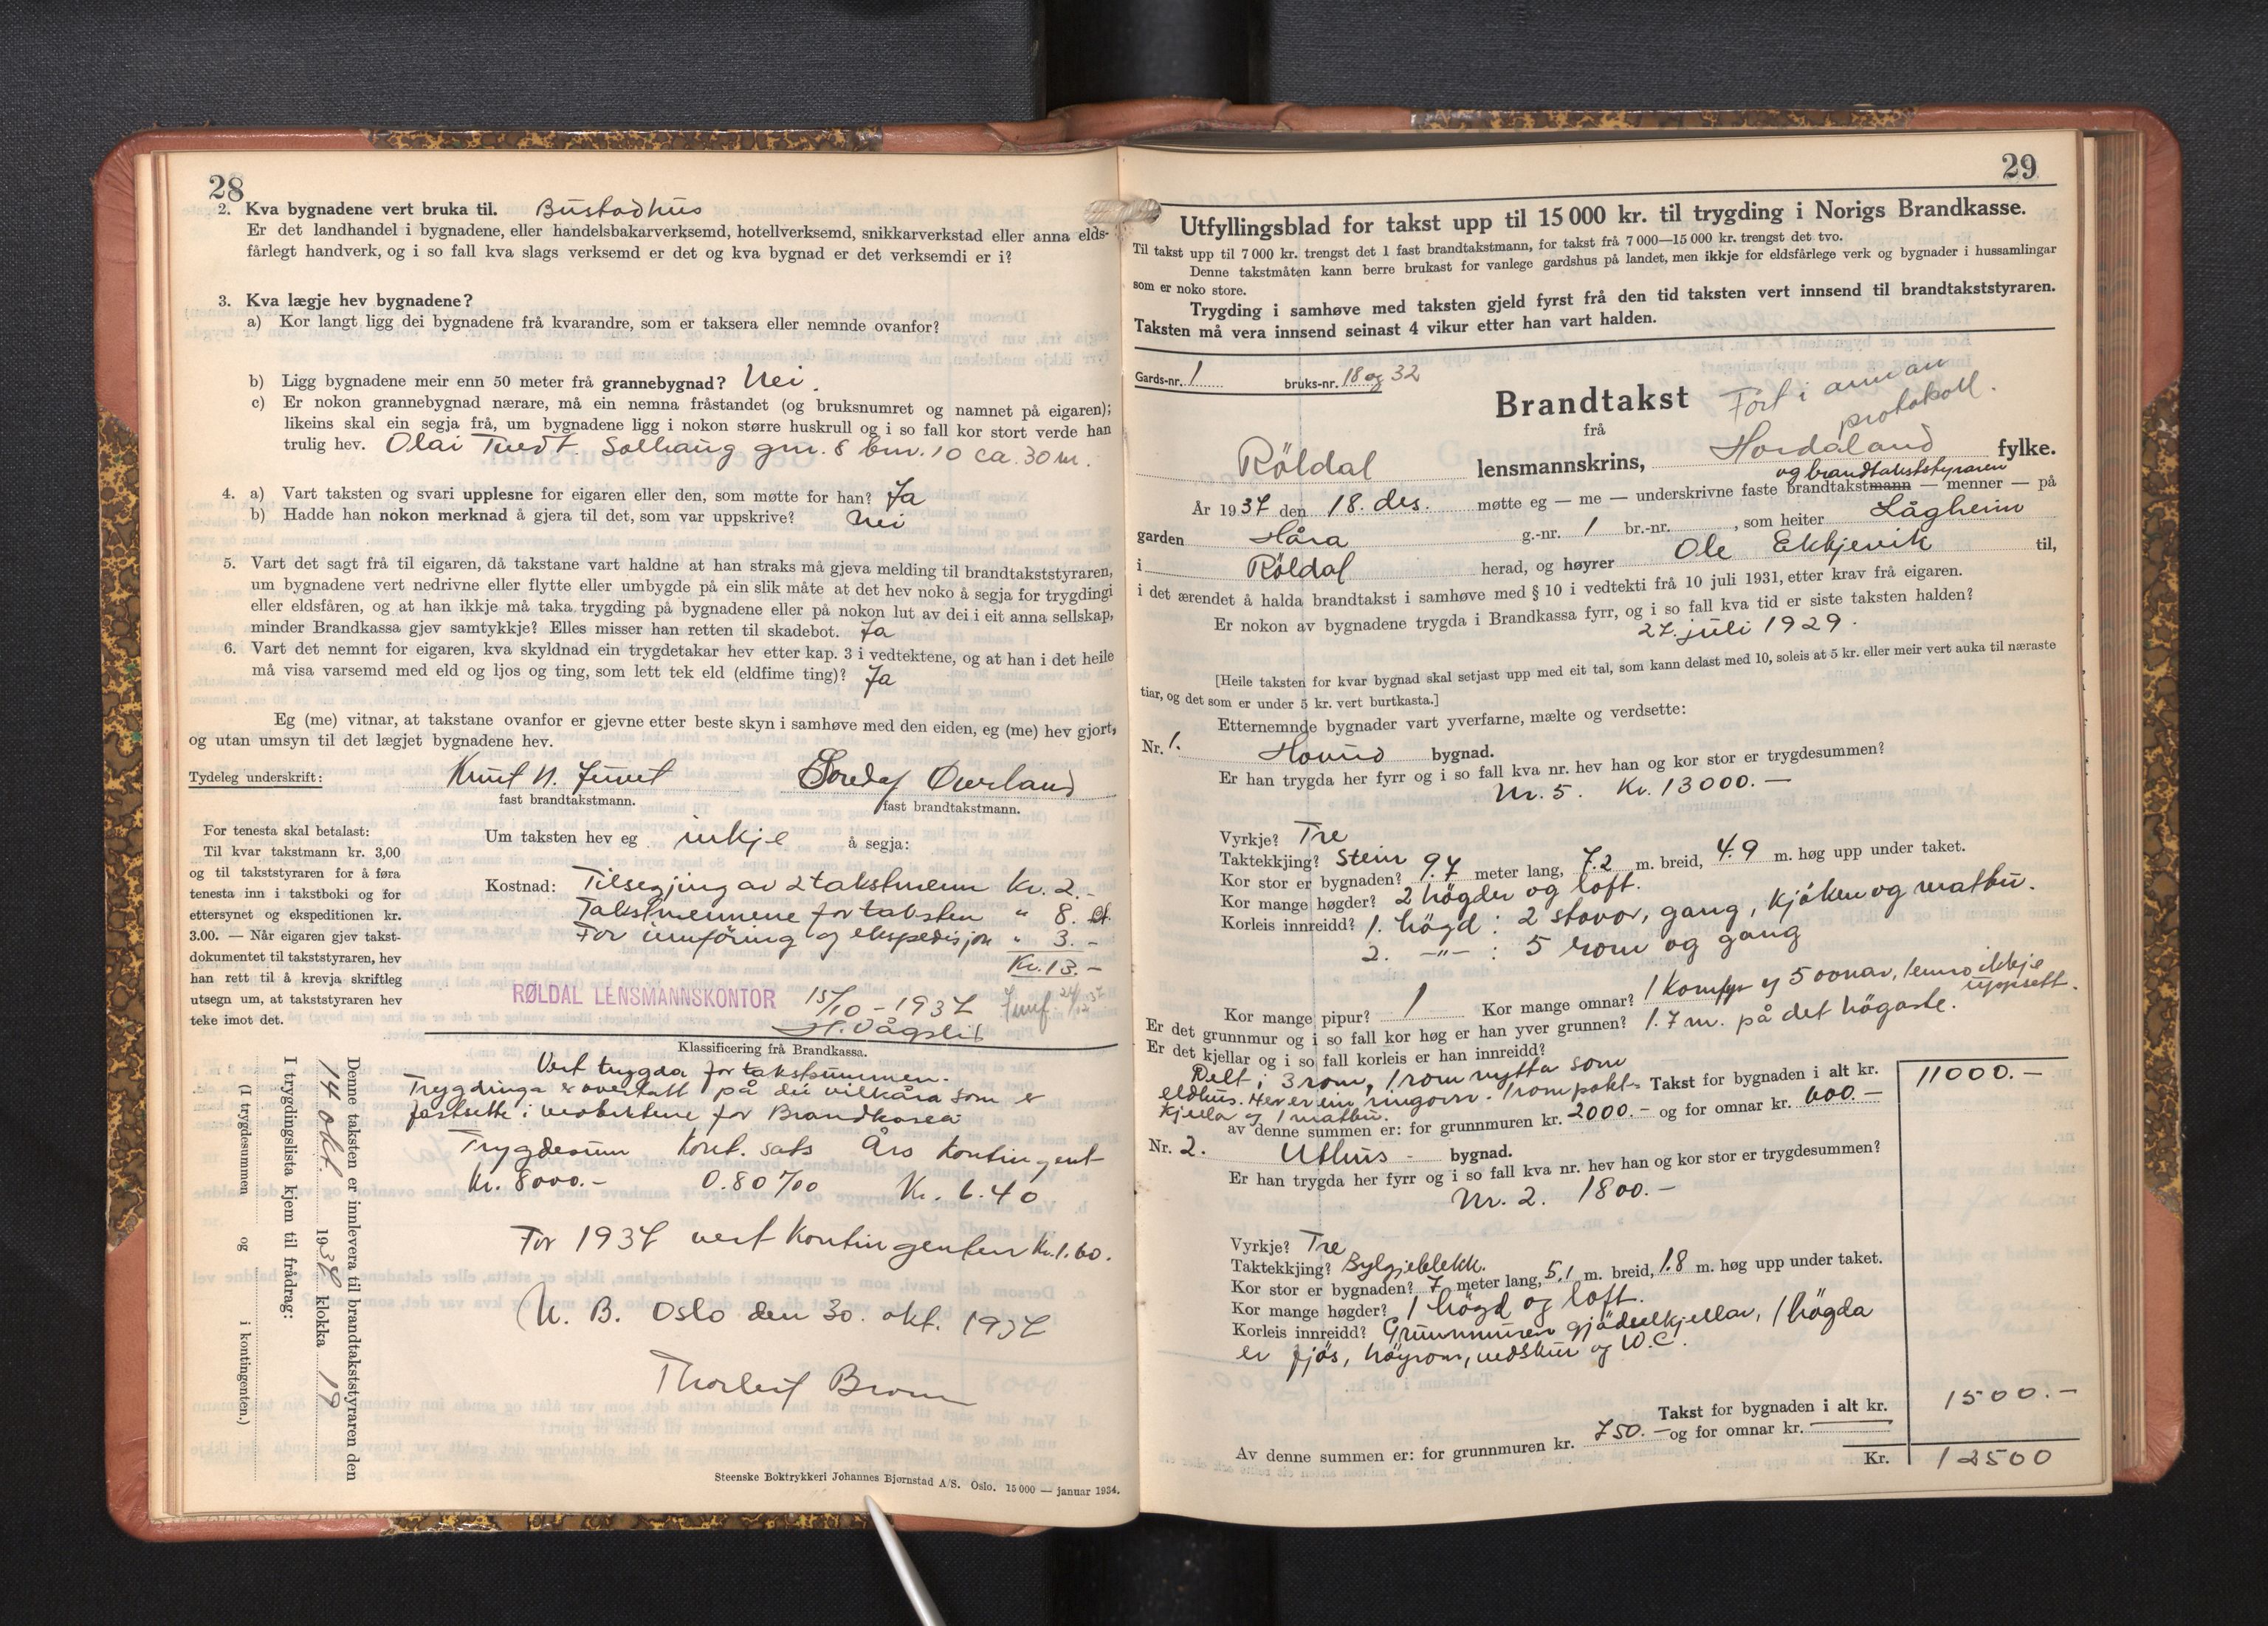 28
2. Kva bygnadene vert bruka til. Bustadhus
Er det landhandel i bygnadene, eller handelsbakarverksemd, hotellverksemd, snikkarverkstad eller anna elds-
fårlegt handverk, og i so fall kva slags verksemd er det og kva bygnad er det verksemdi er i?
3. Kva lægje hev bygnadene?
a) Kor langt ligg dei bygnadene frå kvarandre, som er taksera eller nemnde ovanfor?
b) Ligg bygnadene meir enn 50 meter frå grannebygnad? Nei.
c) Er nokon grannebygnad nærare, må ein nemna fråstandet (og bruksnumret og namnet på eigaren);
likeins skal ein segja frå, um bygnadene ligg i nokon større huskrull og i so fall kor stort verde han
trulig hev. Olai Tvedt. Solhaug gnr. 8 bnr. 10 ca. 30 m.
4. a) Vart taksten og svari upplesne for eigaren eller den, som møtte for han? Ja
b) Hadde han nokon merknad å gjera til det, som var uppskrive? Nei
5. Vart det sagt frå til eigaren, då takstane vart haldne at han straks må gjeva melding til brandtakststyraren,
um bygnadene vert nedrivne eller flytte eller umbygde på ein slik måte at det hev noko å segja for trygdingi
eller eldsfåren, og at han ikkje må taka trygding på bygnadene eller på nokon lut av dei i eit anna sellskap,
minder Brandkassa gjev samtykkje? Elles misser han retten til skadebot. Ja
6. Vart det nemnt for eigaren, kva skyldnad ein trygdetakar hev etter kap. 3 i vedtektene, og at han i det heile
må visa varsemd med eld og ljos og ting, som lett tek eld (eldfime ting)? Ja
Eg (me) vitnar, at takstane ovanfor er gjevne etter beste skyn i samhøve med den eiden, eg (me) hev gjort,
og utan umsyn til det lægjet bygnadene hev.
Tydeleg underskrift: Knut N. Juvet Overland
fast brandtakstmann. fast brandtakstmann.
For tenesta skal betalast:
Til kvar takstmann kr. 3,00
og til takststyraren for å føra
tenesta inn i takstboki og for
ettersynet og ekspeditionen kr.
3.00. — Når eigaren gjev takst-
dokumentet til takststyraren, hev
han rett til å krevja skriftleg
utsegn um, at takststyraren hev
teke imot det.
Um taksten hev eg inkje å segja:
Kostnad: Tilsegjing av 2 takstmenn Kr. 2.-
Takstmennene for taksten " 8.
For innföring og ekspedisjon " 3.-
Kr. 13.-
RØLDAL LENSMANNSKONTOR 15/10 - 1937
H. Vågslid
Klassificering frå Brandkassa.
Vert trygda for takstsummen.
Trygdinga er overtatt på dei vilkåra som er
fastsette i vedtektene for Brandkassa
Trygdesum Kont. sats Års Kontingent
Kr. 8000.- 0.80 ‰ Kr. 6.40
For 1937 vert Kontingenten Kr. 1.60.
N. B. Oslo den 30. okt. 1937
Denne taksten er innlevera til brandtakststyraren den
14 okt. 1937 klokka 19
I trygdingslista kjem til frådrag:
(I trygdesummen og i kontingenten.)
Steenske Boktrykkeri Johannes Bjørnstad A/S. Oslo. 15 000 — januar 1934.
29
Utfyllingsblad for takst upp til 15 000 kr. til trygding i Norigs Brandkasse.
Til takst upp til 7 000 kr. trengst det 1 fast brandtakstmann, for takst frå 7 000—15 000 kr. trengst det tvo.
Denne takstmåten kann berre brukast for vanlege gardshus på landet, men ikkje for eldsfårlege verk og bygnader i hussamlingar
som er noko store.
Trygding i samhøve med taksten gjeld fyrst frå den tid taksten vert innsend til brandtakststyraren.
Taksten må vera innsend seinast 4 vikur etter han vart halden.
Gards-nr. 1 bruks-nr. 18 og 32
Brandtakst Fört i annan
protokoll.
frå
Röldal lensmannskrins, Hordaland fylke.
og brandtakststyraren
År 1937 den 18. des. møtte eg — me — underskrivne faste brandtakstmann — menner — på
garden Håra g.-nr. 1 br.-nr. , som heiter Lågheim
i Röldal herad, og høyrer Ole Ekkjevik til,
i det ærendet å halda brandtakst i samhøve med § 10 i vedtekti frå 10 juli 1931, etter krav frå eigaren.
Er nokon av bygnadene trygda i Brandkassa fyrr, og i so fall kva tid er siste taksten halden?
27. juli 1929.
[Heile taksten for kvar bygnad skal setjast upp med eit tal, som kann delast med 10, soleis at 5 kr. eller meir vert auka til næraste
tiar, og det som er under 5 kr. vert burtkasta.]
Etternemnde bygnader vart yverfarne, mælte og verdsette:
Nr. 1. Hovud bygnad.
Er han trygda her fyrr og i so fall kva nr. hev han og kor stor er trygdesummen?
Nr. 5. Kr. 13000.—
Vyrkje? Tre
Taktekkjing? Stein
Kor stor er bygnaden? 9.7 meter lang, 7.2 m. breid, 4.9 m. høg upp under taket.
Kor mange høgder? 2 högder og loft.
Korleis innreidd? 1. högd: 2 stovor, gang, kjöken og matbu.
2. —"— : 5 rom og gang
Kor mange pipur? 1 Kor mange omnar? 1 komfyr og 5 ovnar, 1 enno ikkje
uppsett.
Er det grunnmur og i so fall kor høg er han yver grunnen? 1.7 m. på det högaste.
Er det kjellar og i so fall korleis er han innreidd?
Delt i 3 rom, 1 rom nytta som
eldhus. Her er ein ringovn. 1 rom potet- Takst for bygnaden i alt kr. 11000.—
kjella og 1 matbu.
av denne summen er: for grunnmuren kr. 2000.— og for omnar kr. 600.—
Nr. 2. Uthus - bygnad.
Er han trygda her fyrr og i so fall kva nr. hev han og kor stor er trygdesummen?
Nr. 2. 1800.—
Vyrkje? Tre
Taktekkjing? Bylgjeblekk.
Kor stor er bygnaden? 7 meter lang, 5.1 m. breid, 1.8 m. høg upp under taket.
Kor mange høgder? 1 högd og loft.
Korleis innreidd? Grunnmuren gjödselkjellar, 1 högda
er fjös, höyrom, vedskur og W.C.
Takst for bygnaden i alt kr. 1500.—
Av denne summen er: for grunnmuren kr. 750.— og for omnar kr.
Kr. 12500